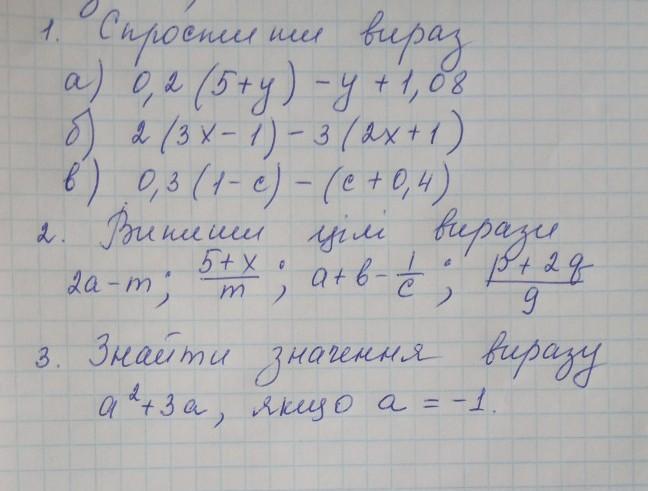 1. Спростити вираз
а) 0,2 (5+y) - y + 1,08
б) 2 (3x - 1) - 3 (2x + 1)
в) 0,3 (1 - c) - (c + 0,4)
2. Випиши цілі вирази
2a - m; (5 + x)/m; a + b - 1/c; (p + 2q)/9
3. Знайти значення виразу
a² + 3a, якщо a = -1.